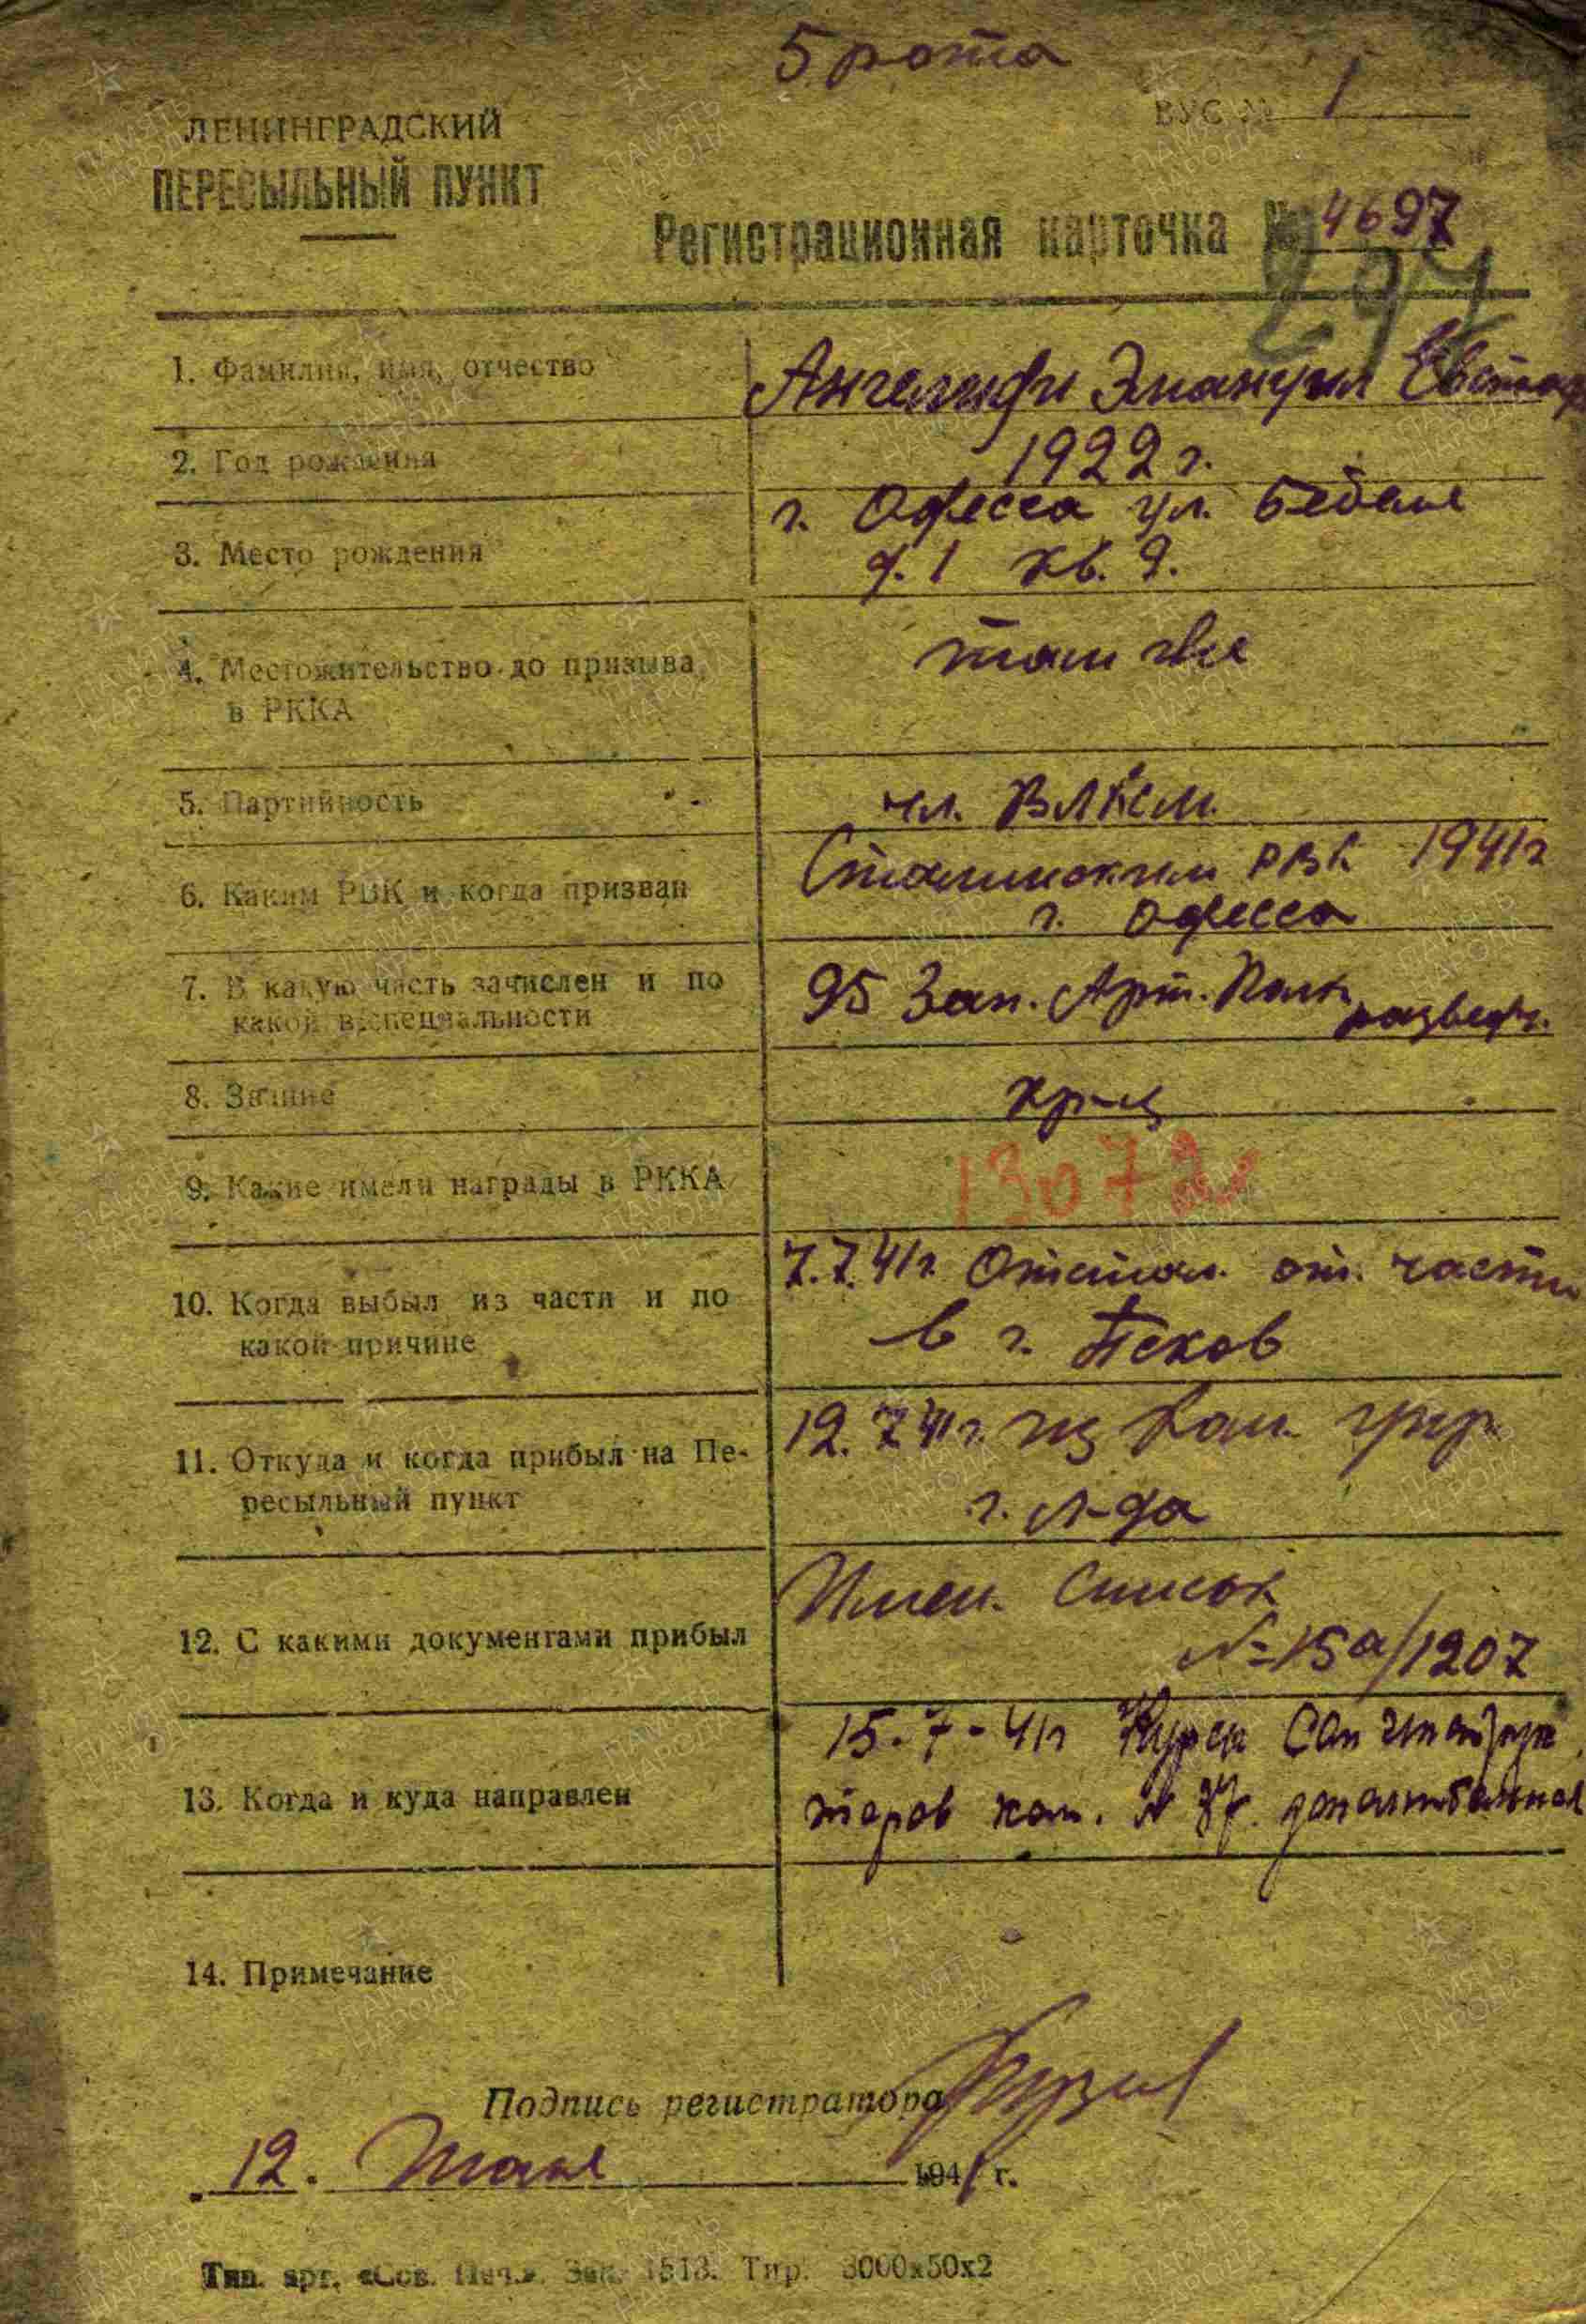 5 рота
ВУС № 1
ЛЕНИНГРАДСКИЙ
ПЕРЕСЫЛЬНЫЙ ПУНКТ
Регистрационная карточка № 4697
1. Фамилия, имя, отчество
Ангелиди Эмануил
2. Год рождения
1922 г.
3. Место рождения
г. Одесса ул. Бебеля
д. 1 кв. 9.
4. Местожительство до призыва
в РККА
там же
5. Партийность
чл. ВЛКСМ.
6. Каким РВК и когда призван
Сталинским РВК 1941 г
г. Одесса
7. В какую часть зачислен и по
какой в/специальности
95 Зап. Арт. Полк
разведч.
8. Звание
кр-ц
9. Какие имели награды в РККА
10. Когда выбыл из части и по
какой причине
7.7.41 г. Отстал. от. части
в г. Псков
11. Откуда и когда прибыл на Пе-
ресыльный пункт
12.7.41 г. из Ком.
г. Л-да
12. С какими документами прибыл
Имен. Список
№ 15а/1207
13. Когда и куда направлен
15.7-41 г Курсы Сан инструк
торов
14. Примечание
Подпись регистратора
12. Июля 1941 г.
Тип. арт. «Сов. Печ.». Зак. 1513. Тир. 3000х50х2